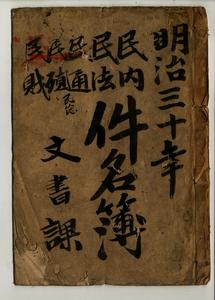 明治三十年
民内
民法
民通
民殖
民財
件名簿
文書課